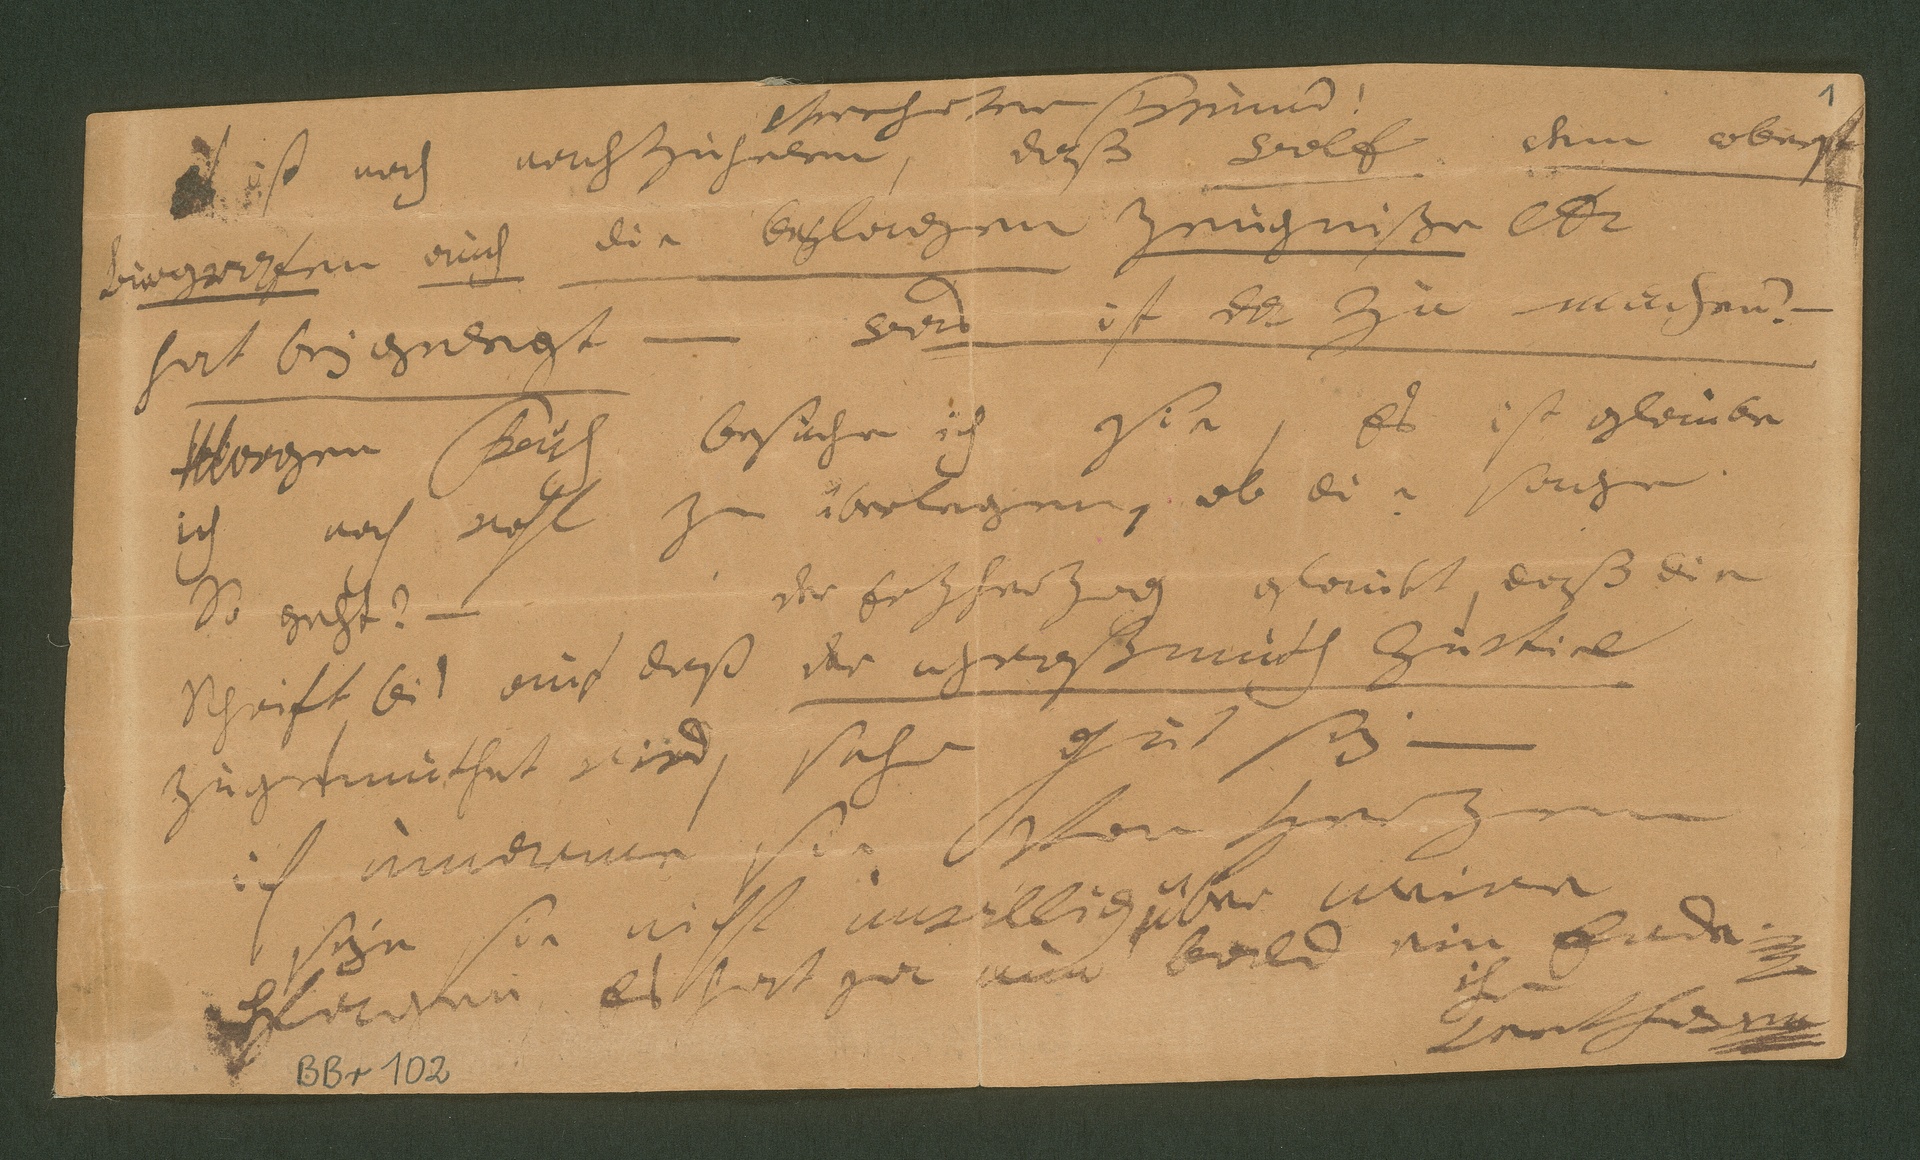 Verehrter Freund!
1
Es ist noch nachzuholen, daß Wolf dem oberst
burggrafen auch die beylagen Zeugniße etc
hat beygelegt — was ist da zu machen? —
Morgen früh besuche ich sie, Es ist glaube
ich noch wohl zu überlegen, ob die sache
So geht? — der Erzherzog glaubt, daß die
Schrift bis auf daß der Zustiel
zugemuthet wird, sehr gut sey —
ich umarme sie von Herzen
seyn sie nicht unwillig über meine
Plagen, Es hat ja nun bald ein Ende.
ihr
Beethoven
BBr 102